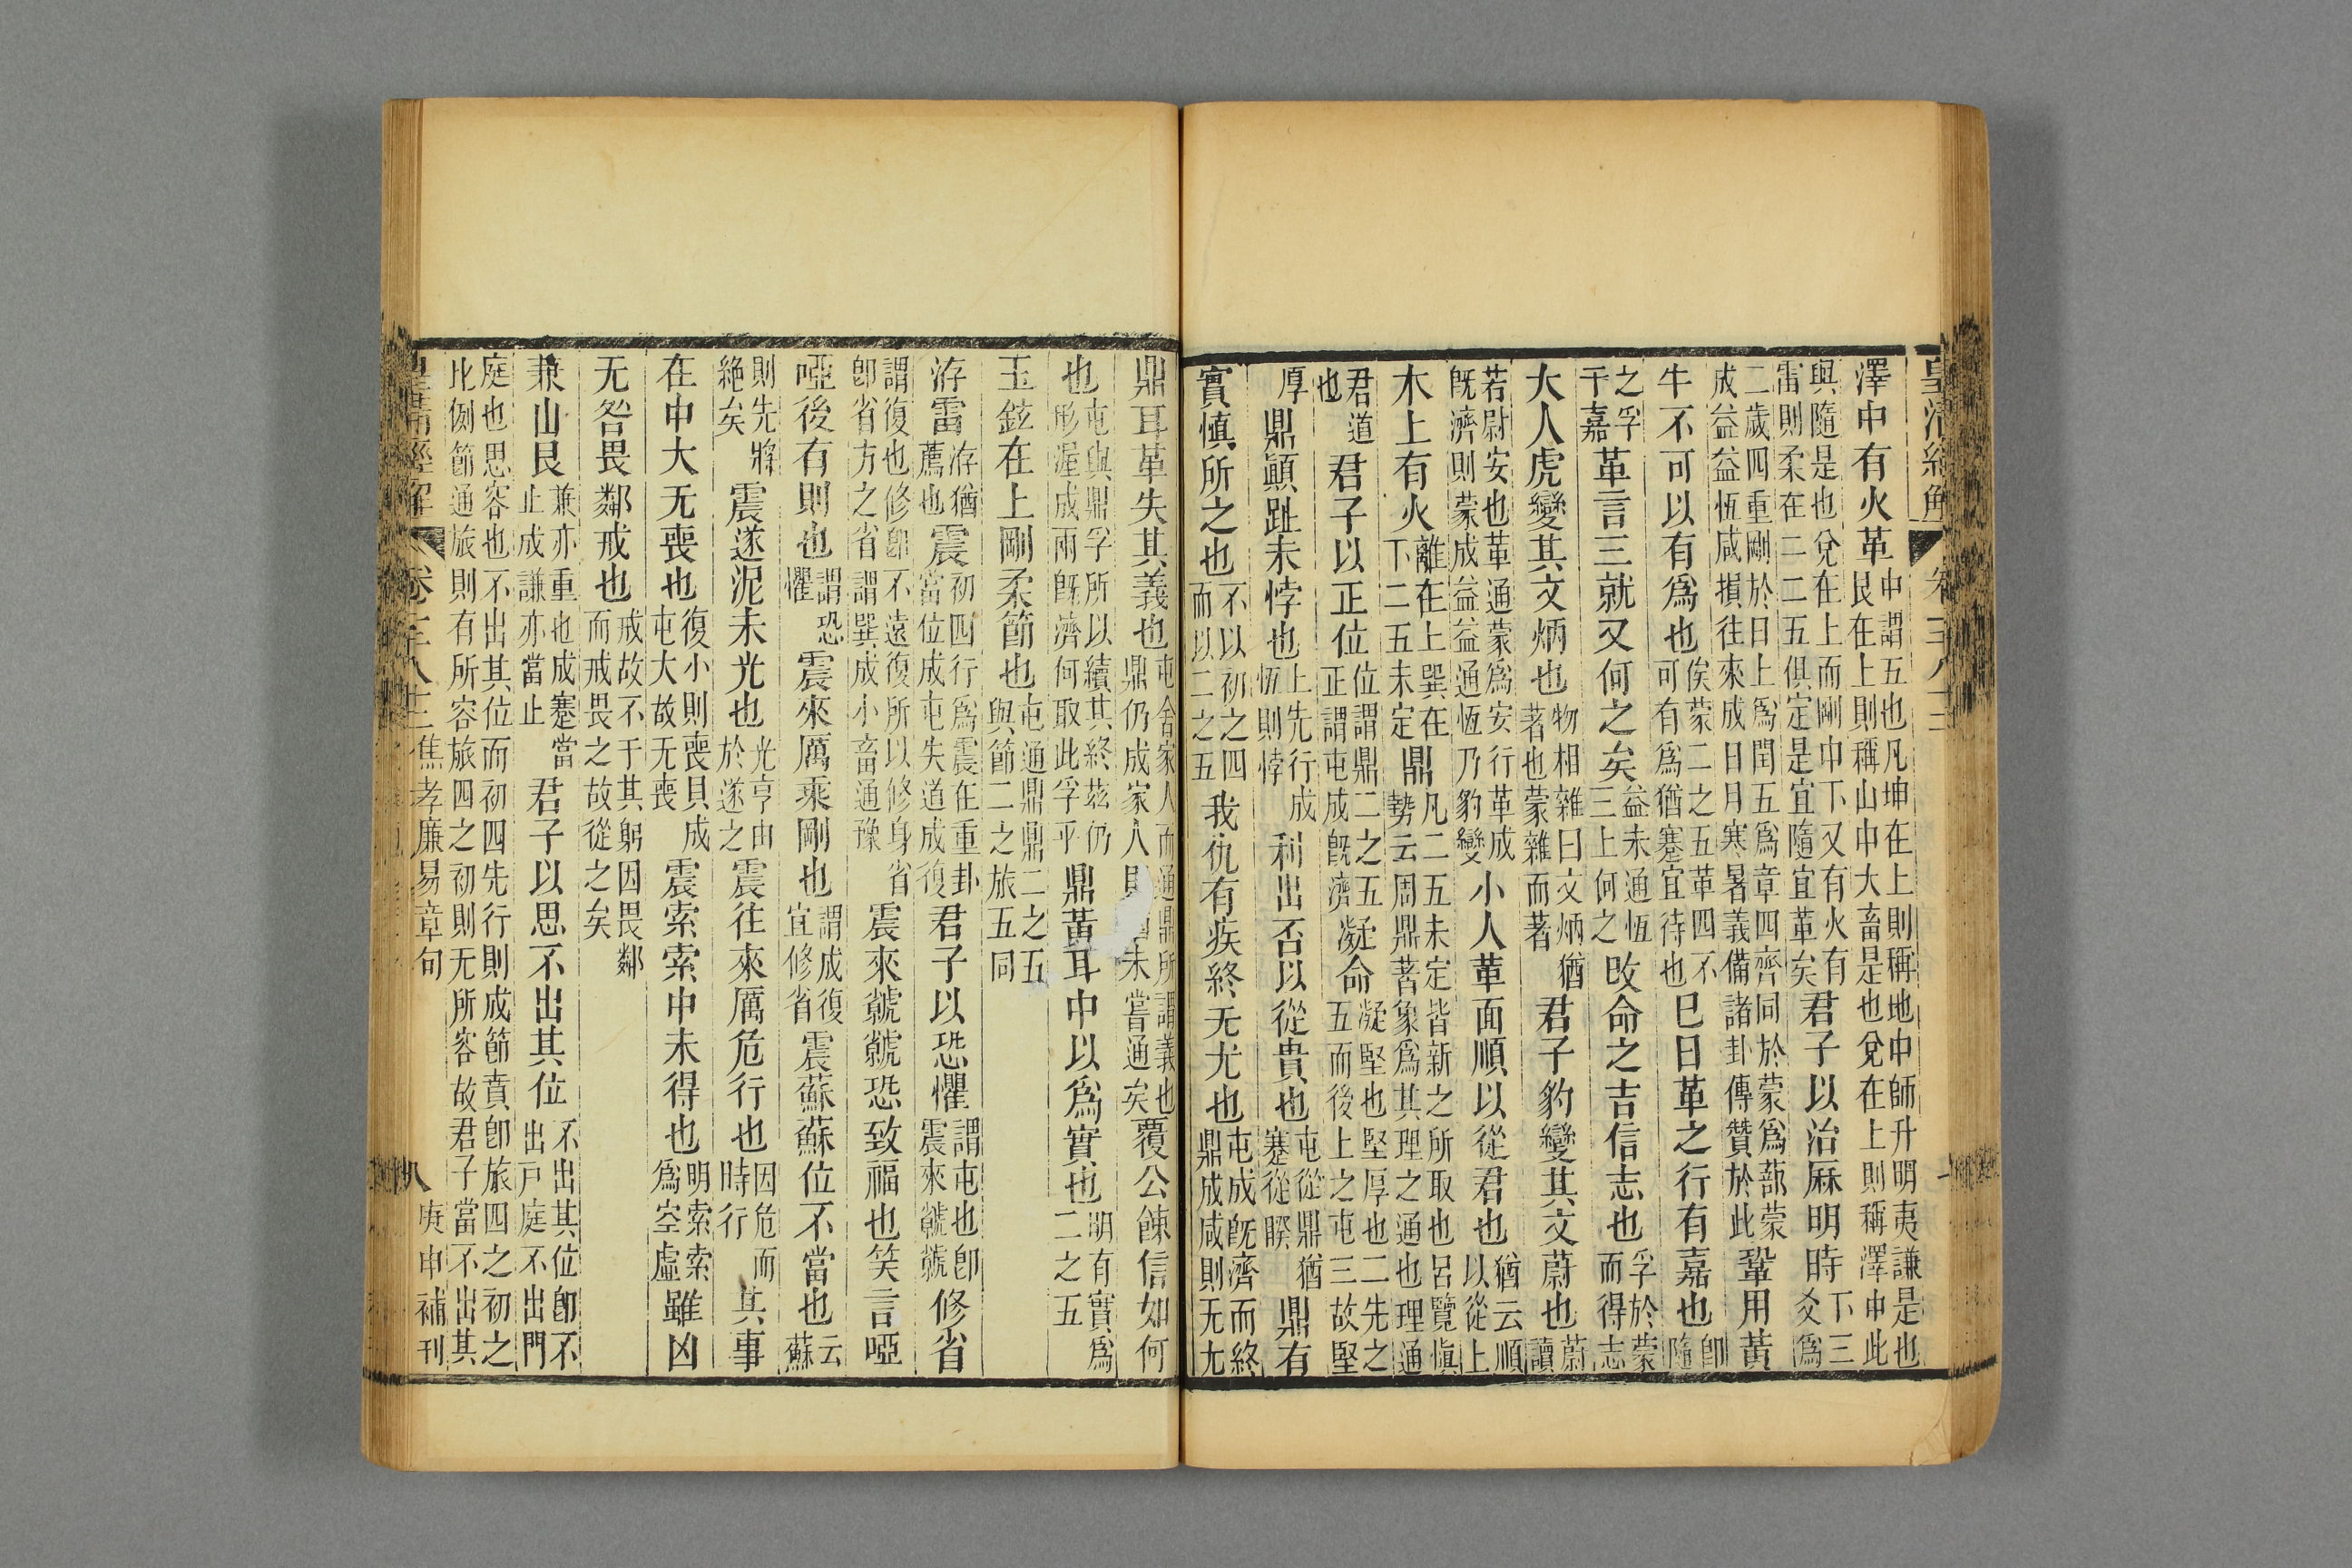 皇清經解 卷千八十三
澤中有火革中謂五也凡坤在上則稱地中師升明夷謙是也艮在上則稱山中大畜是也兌在上則稱澤中此
與隨是也兌在上而剛中下又有火有雷則柔在二二五俱定是宜隨宜革矣君子以治厤明時下三爻爲
二歲四重剛於日上爲閏五爲章四齊同於蒙爲蔀蒙成益益恆咸損往來成日月寒暑義備諸卦傳贊於此鞏用黃
牛不可以有爲也俟蒙二之五革四不可有爲猶蹇宜待也巳日革之行有嘉也卽隨
之孚于嘉革言三就又何之矣益未通恆三上何之改命之吉信志也孚於蒙而得志
大人虎變其文炳也物相雜曰文炳猶著也蒙雜而著君子豹變其文蔚也蔚讀
若尉安也革通蒙爲安行革成旣濟則蒙成益益通恆乃豹變小人革面順以從君也猶云順以從上
木上有火離在上巽在下二五未定鼎凡二五未定皆新之所取也呂覽愼勢云周鼎著象爲其理之通也理通
君道也君子以正位位謂鼎二之五正謂屯成旣濟凝命凝堅也堅厚也二先之五而後上之屯三故堅
厚鼎顚趾未悖也上先行成恆則悖利出否以從貴也屯從鼎猶蹇從睽鼎有
實愼所之也不以初之四而以二之五我仇有疾終无尤也屯成旣濟而終鼎成咸則无尤
鼎耳革失其義也屯舍家人而通鼎所謂義也鼎仍成家人未嘗通矣覆公餗信如何
也屯與鼎孚所以續其終茲仍形渥成兩旣濟何取此孚乎鼎黃耳中以爲實也明有實爲二之五
玉鉉在上剛柔節也屯通鼎鼎二之五與節二之旅五同
洊雷洊猶薦也震初四行爲震在重卦當位成屯失道成復君子以恐懼謂屯也卽震來虩虩修省
謂復也修卽不遠復所以修身省卽省方之省謂巽成小畜通豫震來虩虩恐致福也笑言啞
啞後有則也謂恐懼震來厲乘剛也謂成復宜修省震蘇蘇位不當也云蘇
則先將絕矣震遂泥未光也光亨由於遂之震往來厲危行也因危而時行其事
在中大无喪也復小則喪貝成屯大故无喪震索索中未得也明索索爲空虛雖凶
无咎畏鄰戒也戒故不于其躬因畏鄰而戒畏之故從之矣
兼山艮兼亦重也成蹇當止成謙亦當止君子以思不出其位不出其位卽不出戶庭不出門
庭也思容也不出其位而初四先行則成節賁卽旅四之初之比例節通旅則有所容旅四之初則无所容故君子當不出其
皇清經解 卷千八十三 焦孝廉易章句 八 庚申補刊